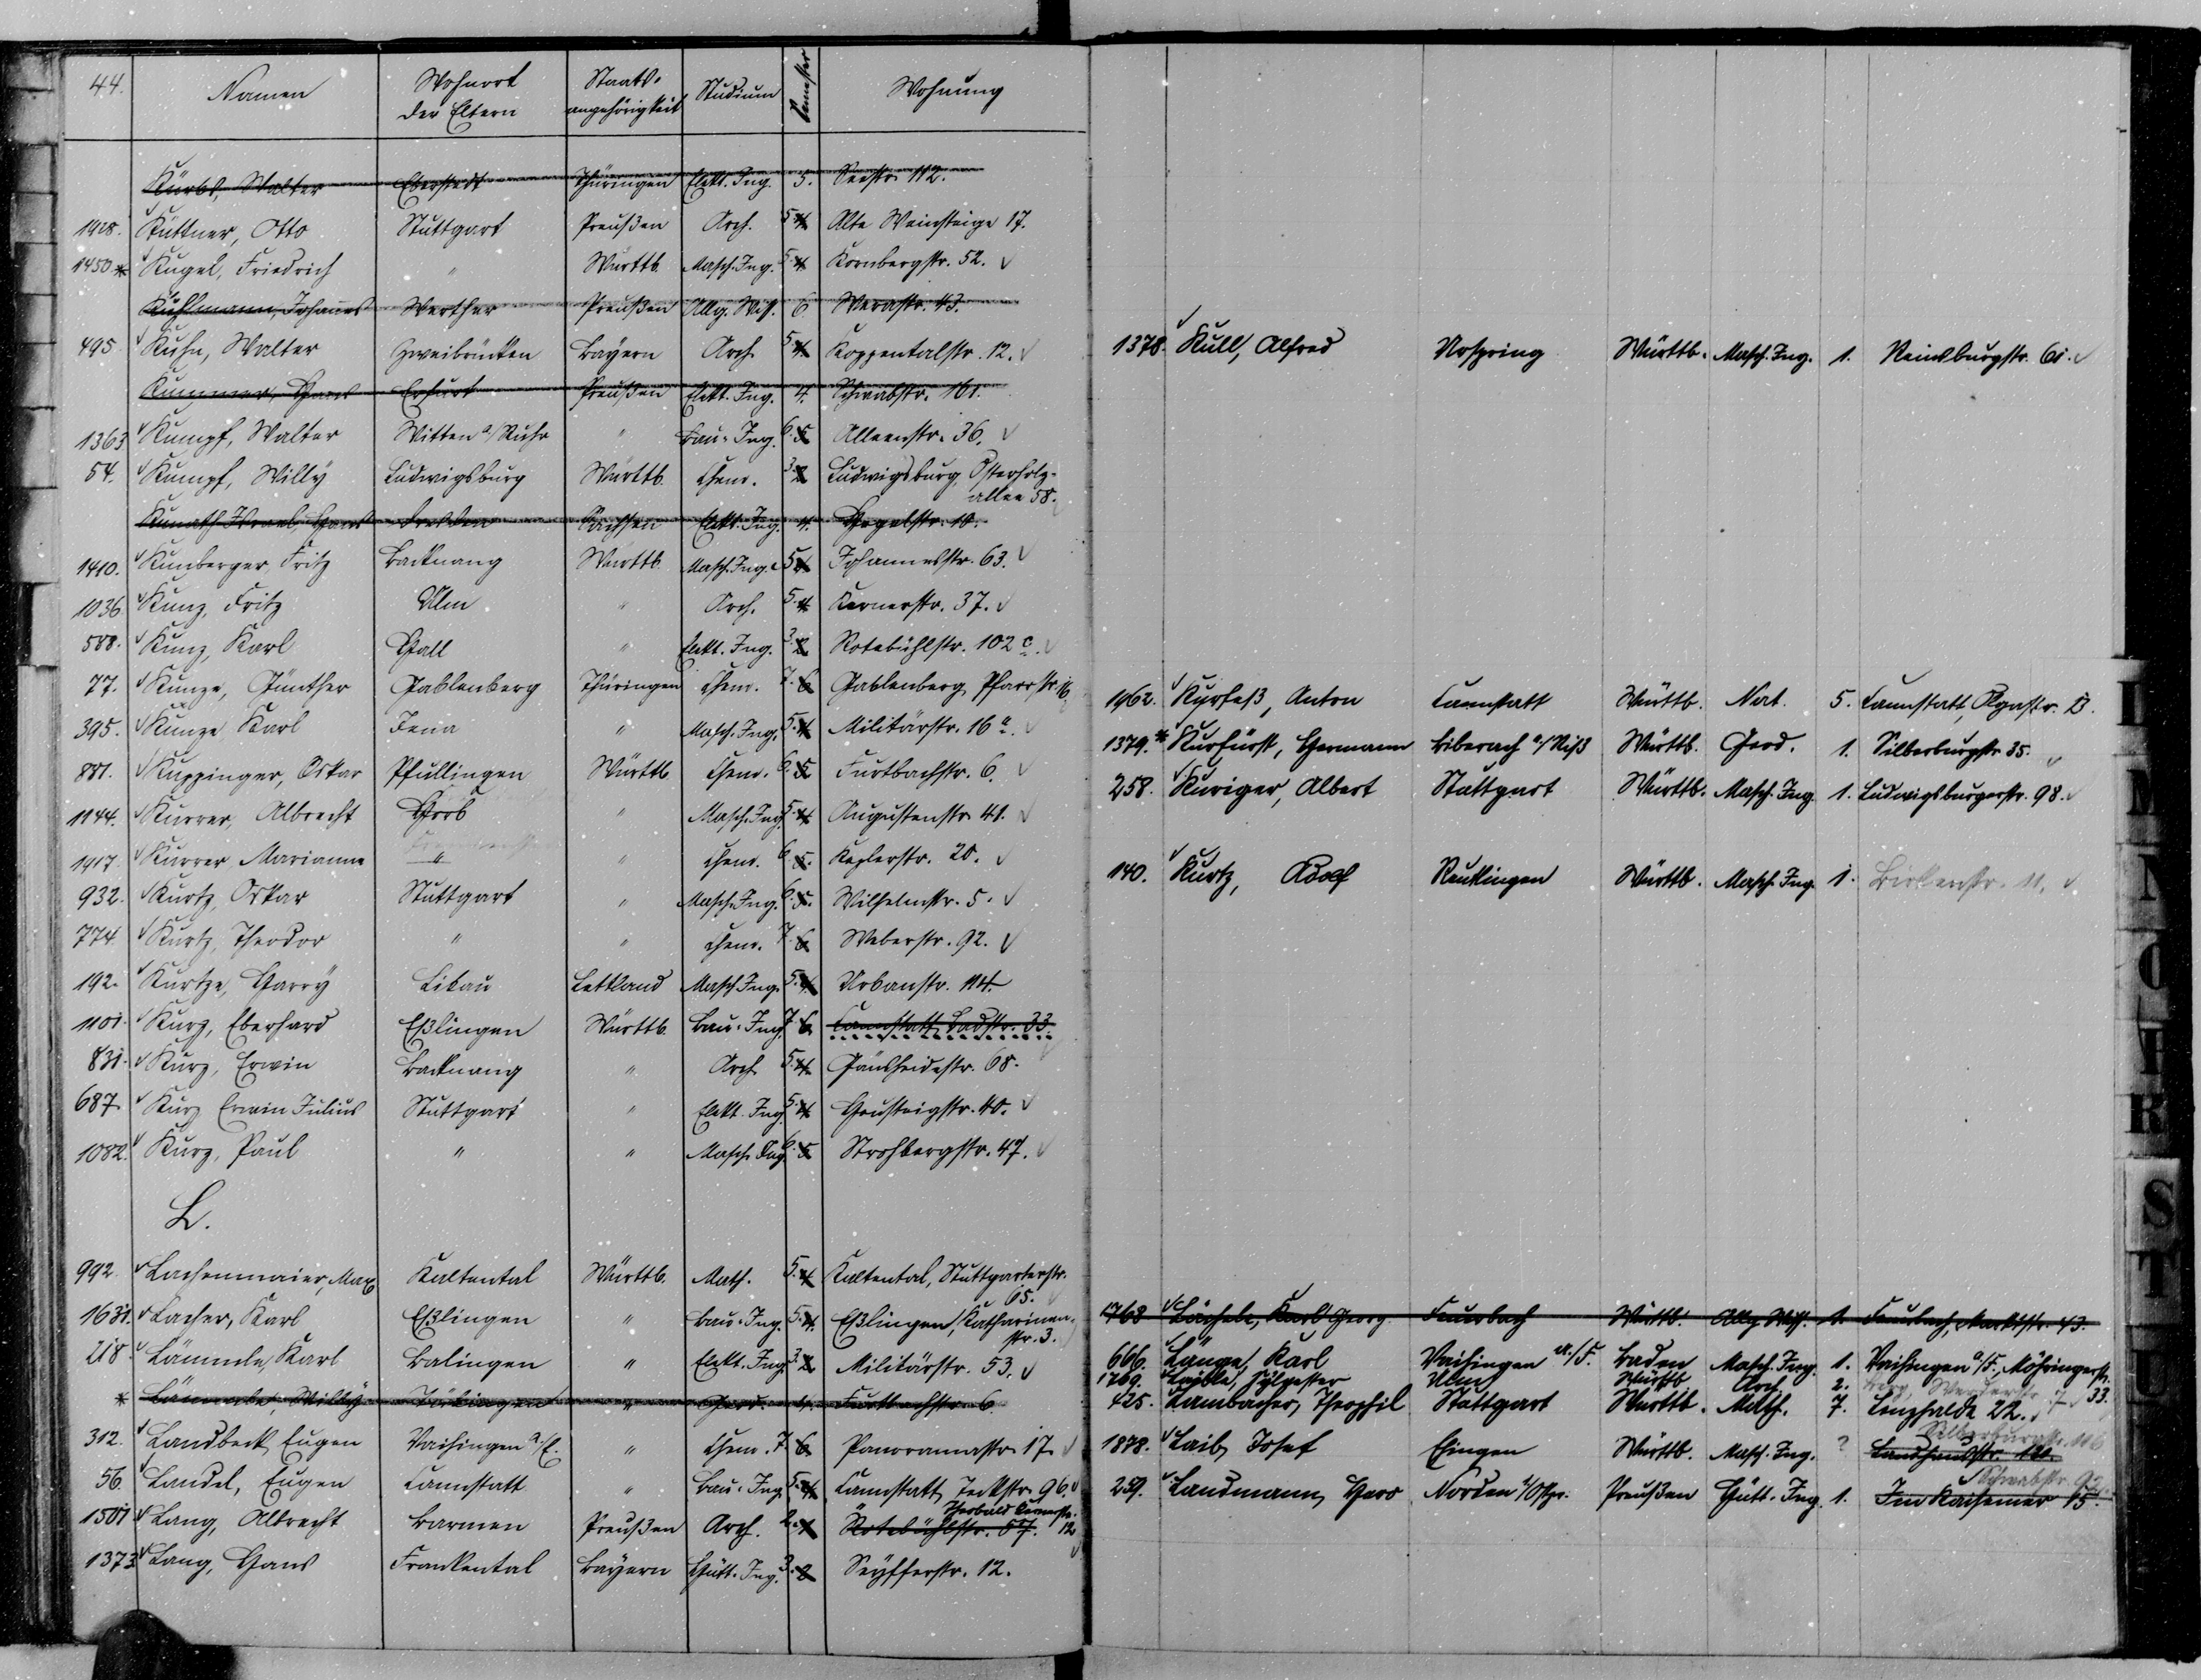 44. Namen Wohnort der Eltern Staats-angehörigkeit Studium Semester Wohnung
Kürbs, Walter Eberstedt Thüringen Elekt. Ing. 5. Seestr. 112.
1428. Küttner, Otto Stuttgart Preußen Arch. 5. 4. Alte Weinsteige 17.
1450 * Kugel, Friedrich " Württb. Masch. Ing. 5. 4. Kornbergstr. 52.
Kuhlmann, Johannes Werther Preußen Allg. Wiss. 6 Werastr. 43.
495. Kuhn, Walter Zweibrücken Bayern Arch. 5. 4. Koppentalstr. 12.
Kummer, Hans Erfurt Preußen Elekt. Ing. 4. Schwabstr. 161.
1363 Kumpf, Walter Witten a/Ruhr " Bau-Ing. 6. 5. Alleenstr. 36.
54. Kumpf, Willy Ludwigsburg Württb. Chem. 3. 2. Ludwigsburg, Osterholz-
allee 58.
Kunath Hans Dresden Sachsen Elekt. Ing. 4. Hegelstr. 10.
1410. Kunberger Fritz Backnang Württb. Masch. Ing. 5. 4. Johannesstr. 63.
1036. Kunz, Fritz Ulm " Arch. 5. 4. Kernerstr. 37.
588. Kunz, Karl Hall " Elekt. Ing. 3. 2. Rotebühlstr. 102 c.
77. Kunze, Günther Gablenberg Thüringen Chem. 7. 6. Gablenberg, Pfarrstr. 16
395. Kunze Karl Jena " Masch. Ing. 5. 4. Militärstr. 16 a.
881. Kuppinger, Oskar Pfullingen Württb. Chem. 6. 5. Furtbachstr. 6.
1144. Kurrer, Albrecht Horb " Masch. Ing. 5. 4. Augustenstr. 41.
1417. Kurrer, Marianne " " Chem. 6. 5. Keplerstr. 20.
932. Kurtz, Oskar Stuttgart " Masch. Ing. 6. 5. Wilhelmstr. 5.
774. Kurtz, Theodor " " Chem. 7. 6. Weberstr. 92.
192. Kurtze, Harry Libau Lettland Masch. Ing. 5. 4. Urbanstr. 114.
1101. Kurz, Eberhard Eßlingen Württb. Bau-Ing. 7. 6. Cannstatt, Badstr. 33.
831. Kurz, Erwin Backnang " Arch. 5. 4. Gänsheidestr. 68.
687. Kurz Erwin Julius Stuttgart " Elekt. Ing. 5. 4. Heusteigstr. 40.
1082. Kurz, Paul " " Masch. Ing. 6. 5. Strohbergstr. 47.
L.
992. Lachenmaier, Max Kaltental Württb. Math. 5. 4. Kaltental, Stuttgarterstr.
65.
1631. Lacher, Karl Eßlingen " Bau-Ing. 5. 4. Eßlingen, Katharinen-
str. 3.
218. Lämmle, Karl Balingen " Elekt. Ing. 3. 2. Militärstr. 53.
* Lämmle, Willy Tübingen " 4. Furtbachstr. 6.
312. Landbeck Eugen Vaihingen a./E. " Chem. 7. 6. Panoramastr. 17
56. Landel, Eugen Cannstatt " Bau-Ing. 5. 4. Cannstatt, Teckstr. 96.
1501 Lang, Albrecht Barmen Preußen Arch. 2. 1. Rotebühlstr. 57. 12
1373 Lang, Hans Frankental Bayern Hütt. Ing. 3. 2 Seyfferstr. 12.
1378. Kull, Alfred Urspring Württb. Masch. Ing. 1. Reinsburgstr. 60.
1962. Kyrfaß, Anton Cannstatt Württb. Nat. 5. Cannstatt, Olgastr. 13.
1379. * Kurfürst, Hermann Biberach a/Riß Württb. Geod. 1. Silberburgstr. 35.
258. Kuriger, Albert Stuttgart Württb. Masch. Ing. 1. Ludwigsburgerstr. 98.
140. Kurtz, Adolf Reutlingen Württb. Masch. Ing. 1. Birkenstr. 11.
1768 Lächele, Karl Georg Feuerbach Württb. Allg. Wiss. 1. Feuerbach, Marktstr. 43.
666. Länge, Karl Vaihingen a./F. Baden Masch. Ing. 1. Vaihingen a/F., Möhringerstr.
33.
1769. Laible, Sylvester Ulm Württb. Arch. 2.
425. Lambacher, Theophil Stuttgart Württb. Math. 7. Lenzhalde 22.
Silberburgstr. 116
1878. Laib, Josef Ehingen Württb. Masch. Ing. ? Landhausstr.
Schwabstr.
259. Landmann, Hero Norden i/Ostfr. Preußen Hütt. Ing. 1. Im Kaisemer 15.
L
M
N
O
R
S
T
U